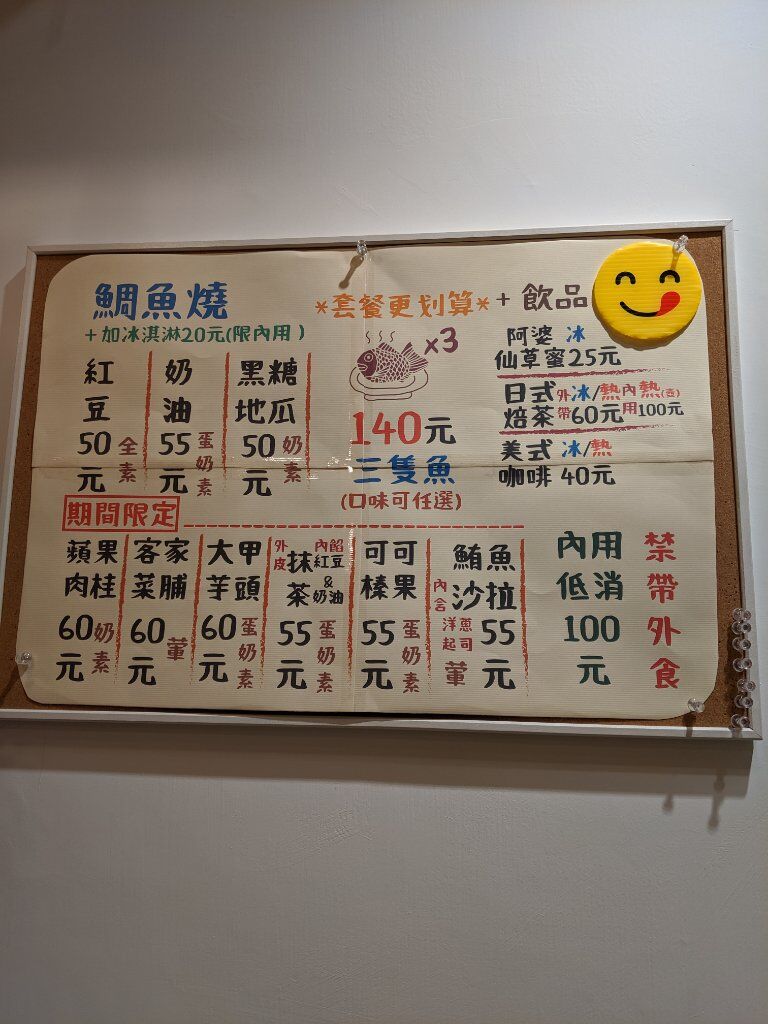 鯛魚燒
+加冰淇淋20元(限內用)
紅豆 50元 全素
奶油 55元 蛋奶素
黑糖地瓜 50元 奶素
*套餐更划算*
x3
140元
三隻魚
(口味可任選)
+飲品
阿婆 冰
仙草蜜25元
日式焙茶 外帶 冰/熱 60元 內用 熱(壺) 100元
美式 冰/熱
咖啡 40元
期間限定
蘋果肉桂 60元 奶素
客家菜脯 60元 葷
大甲芋頭 60元 蛋奶素
外皮 抹茶 內餡 紅豆&奶油 55元 蛋奶素
可可榛果 55元 蛋奶素
鮪魚沙拉 內含洋蔥起司 55元 葷
內用低消100元
禁帶外食